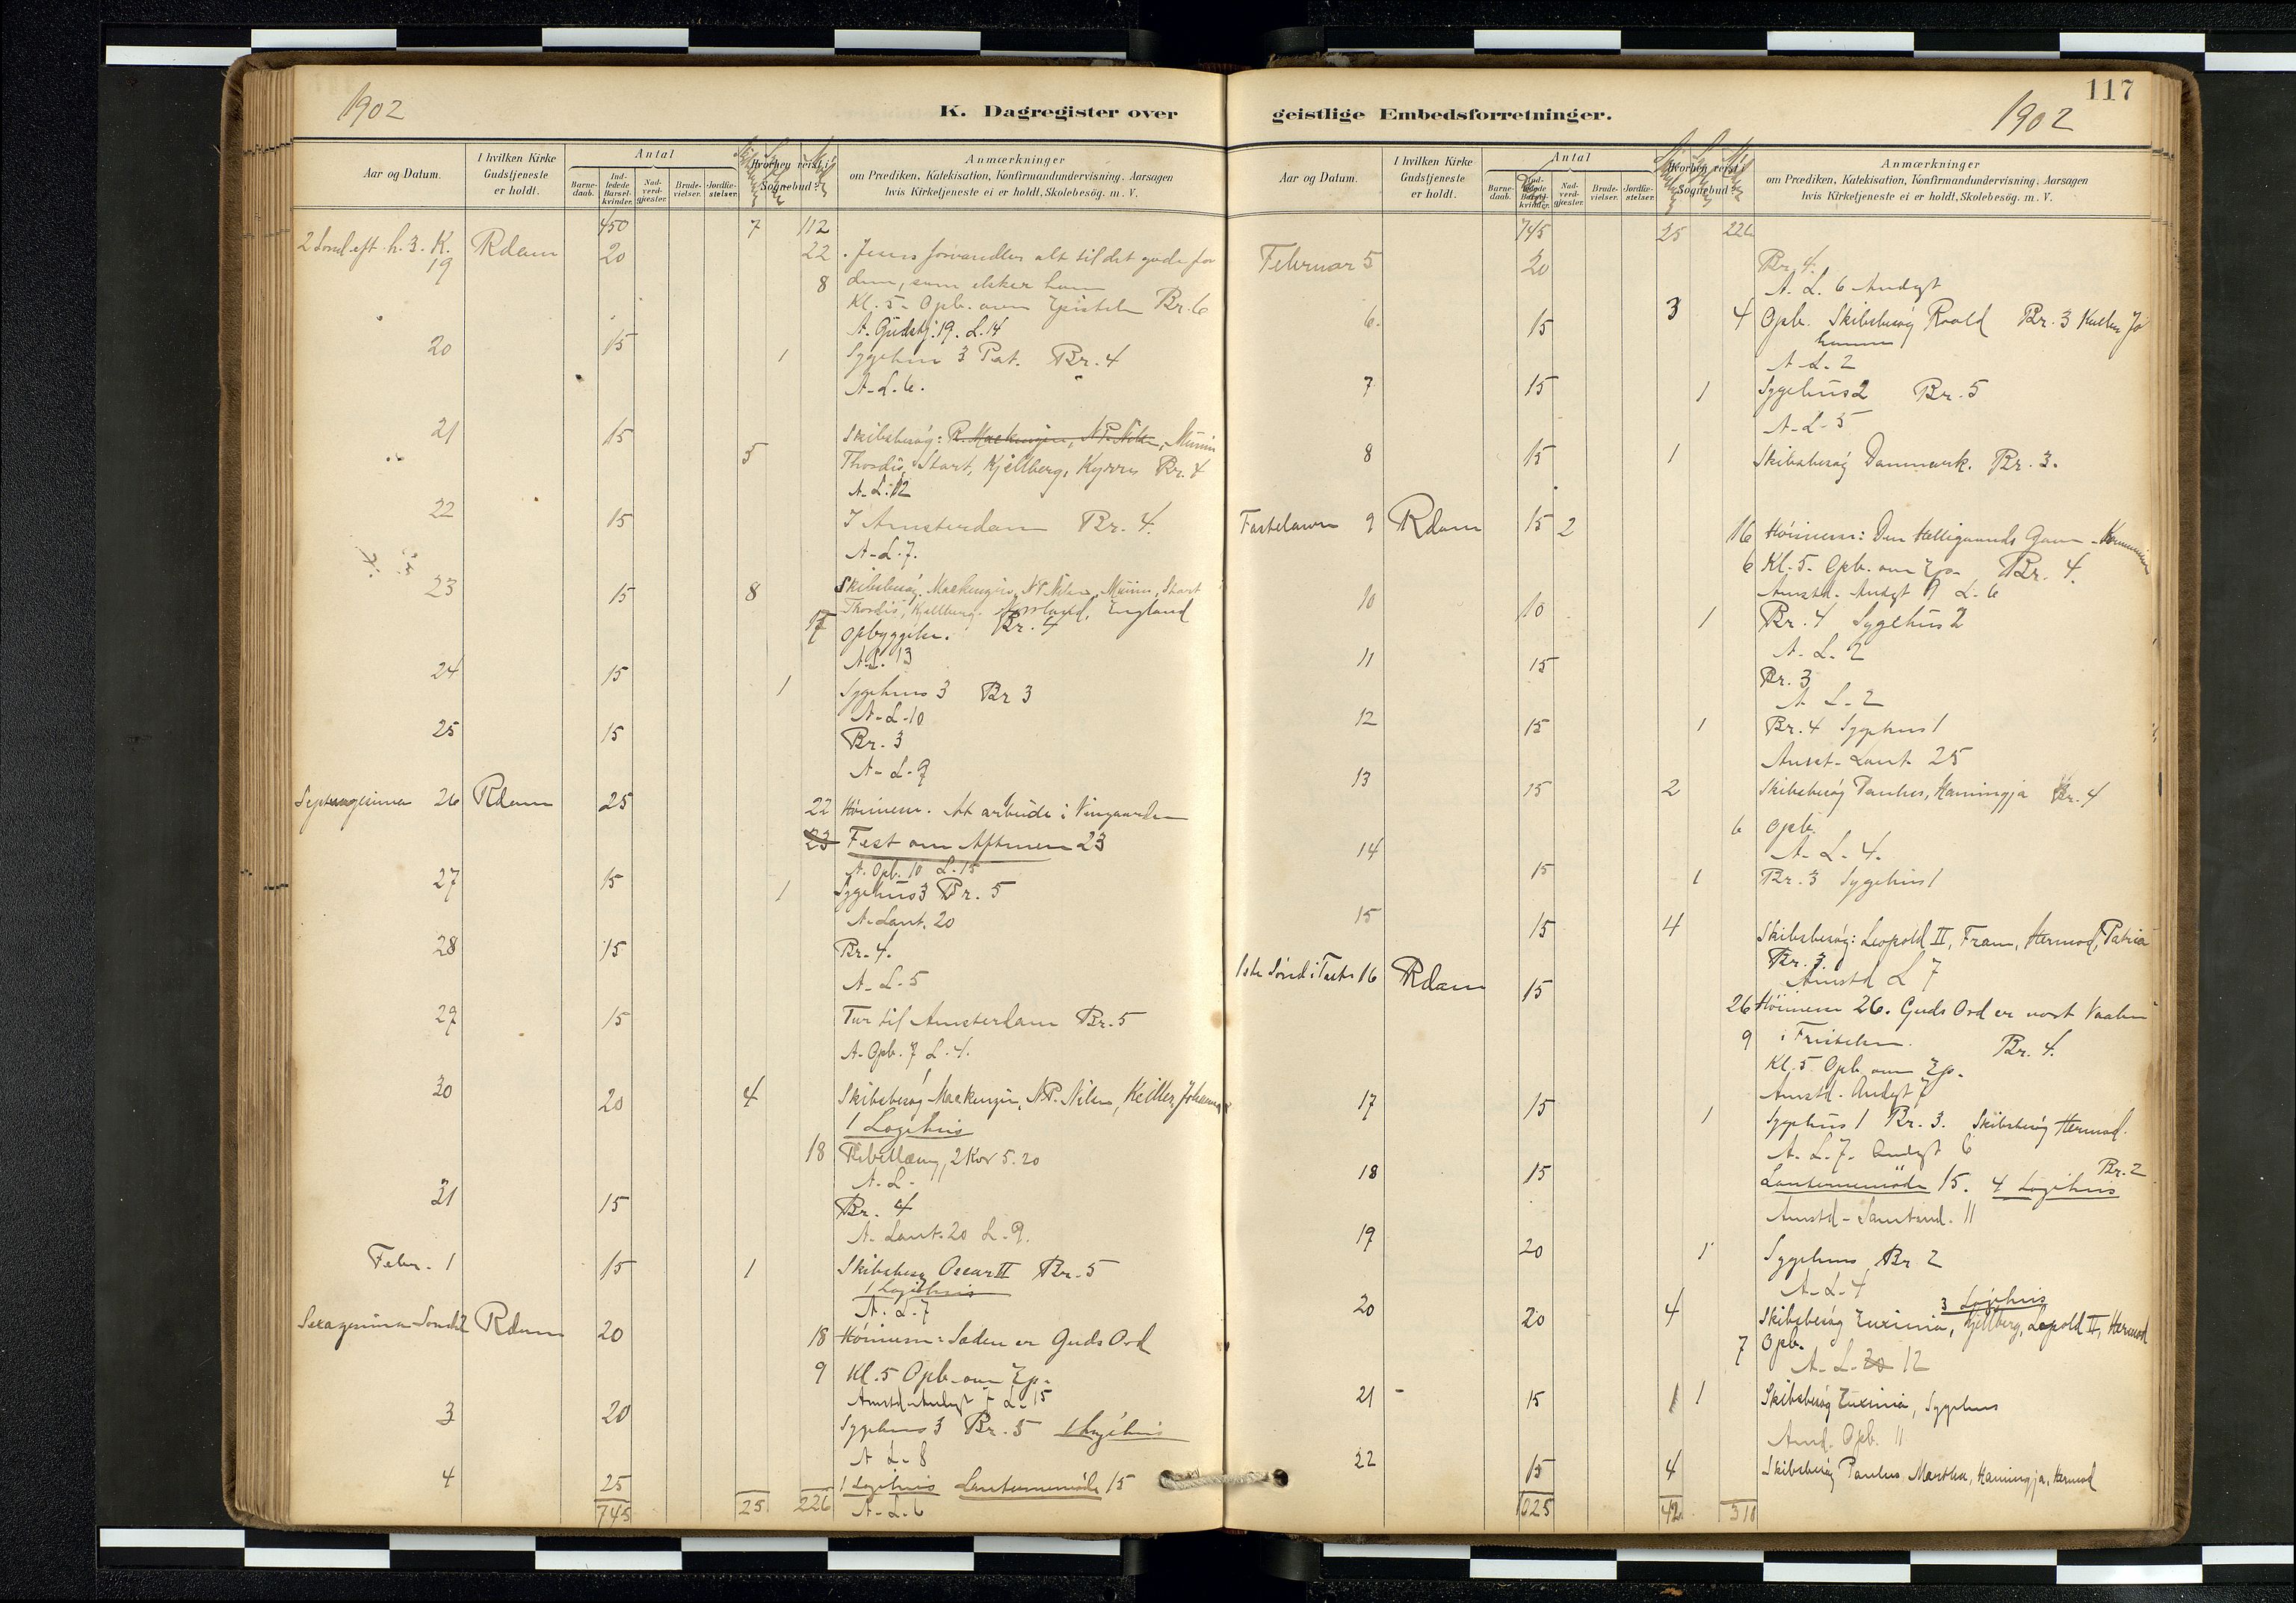 1902
K. Dagregister over
Aar og Datum.
I hvilken Kirke Gudstjeneste er holdt.
Antal
Barne-daab.
Ind-ledede Barsel-kvinder.
Nad-verd-gjæster.
Brude-vielser.
Jordfæ-stelser.
Hvorhen reist i Sognebud?
Anmærkninger
om Prædiken, Katekisation, Konfirmandundervisning, Aarsagen
hvis Kirketjeneste ei er holdt, Skolebesög. m. V.
450 7 112
2 Sønd. eft. h. 3. K. 19 Rdam 20 22 Jesus forvandler alt til det gode for
8 dem, som elsker ham
Kl. 5 - Opb. over Epistelen Br. 6
A. Gudstj. 19. L. 14
20 15 1 Sygehus 3 Pat. Br. 4
A - L. 6.
21 15 Skibsbesøg: R. Mackenzie, N.P. Nilsen, Mimir
5 Thordis, Start, Kjellberg, Kyrres Br. 4
A - L. 12
22 15 I Amsterdam Br. 4.
A - L. 7.
23 15 8 Skibsbesøg. Mackenzie, N.P. Nilsen, Mimir, Start
Thordis, Kjellberg. England
17 opbyggelse. Br. 4
A L. 13
24 15 1 Sygehus 3 Br 3
A - L - 10
25 15 Br. 3
A - L - 9
Septuagesima 26 Rdam 25 22 Høimesse. At arbeide i Vingaarden
23 Fest om Aftenen 23
A. Opb. 10 L. 15
27 15 1 Sygehus 3 Br. 5
A. Lant. 20
28 15 Br. 4.
A - L - 5
29 15 Tur til Amsterdam Br. 5
A - Opb. 7 L. 4.
30 20 4 Skibsbesøg Mackenzie, N.P. Nilsen, Keiller, Johanna
1 Logihus
18 Bibellæsn, 2 Kor 5. 20
A. L.
31 15 Br. 4
A - Lant. 20 L. 9.
Febr. 1 15 1 Skibsbesøg Oscar II Br. 5
1 Logihus
A. L. 7
Sexagesima Sønd 2 Rdam 20 18 Høimesse: Sæden er Guds Ord
9 Kl. 5 Opb. over Ep.
Amstd. Andagt 7 L. 15
3 20 Sygehus 3 Br. 5 1 Logihus
A L - 8
4 25 1 Logihus Lanternemøde 15
745 25 226 A - L. 6
117
1902
geistlige Embedsforretninger.
Aar og Datum.
I hvilken Kirke Gudstjeneste er holdt.
Antal
Barne-daab.
Ind-ledede Barsel-kvinder.
Nad-verd-gjæster.
Brude-vielser.
Jordfæ-stelser.
Hvorhen reist i Sognebud?
Anmærkninger
om Prædiken, Katekisation, Konfirmandundervisning, Aarsagen
hvis Kirketjeneste ei er holdt, Skolebesög. m. V.
745 25 226
Februar 5 20 Br. 4.
A. L. 6 Andagt
6. 15 3 4 Opb. Skibsbesøg Roald Br. 3
A - L - 2
7 15 1 Sygehus 2 Br. 5
A - L - 5
8 15 1 Skibsbesøg Danmark. Br. 3.
Fastelavn 9 Rdam 15 2 16 Høimesse: Den Helligaands Gave -
6 Kl. 5 - Opb. over Ep. Br. 4.
Amstd. Andagt 9 L. 6
10 10 1 Br. 4 Sygehus 2
A. L. 2
11 15 Br. 3
A L - 2
12 15 1 Br. 4 Sygehus 1
Amst - Lant - 25
13 15 2 Skibsbesøg Paulus, Hamingja Br. 4
6 Opb.
A - L - 4.
14 15 1 Br. 3 Sygehus 1
15 15 4 Skibsbesøg: Leopold II, Fram, Hermod, Patria
Br. 3.
Amstd L 7
1ste Sønd i Faste 16 Rdam 15 26 Høimesse 26. Guds Ord er vort Vaaben
9 i Fristelsen. Br. 4.
Kl. 5 Opb. over Ep.
Amstd. Andagt 7
17 15 1 Sygehus 1 Br. 3. Skibsbesøg Hermod.
A. L. 7. Andagt 6
18 15 Lanternemøde 15. 4 Logihus Br. 2
Amstd - 11
19 20 1 Sygehus Br. 2
A - L - 4
3 Logihus
20 20 4 Skibsbesøg Euxinia, Kjellberg, Leopold II, Hermod
7 Opb.
A - L - 20 12
21 - 15 1 1 Skibsbesøg Euxinia, Sygehus
Amd. Opb. 11
22 15 4 Skibsbesøg Paulus Martha, Hamingja, Hermod
1025 42 318